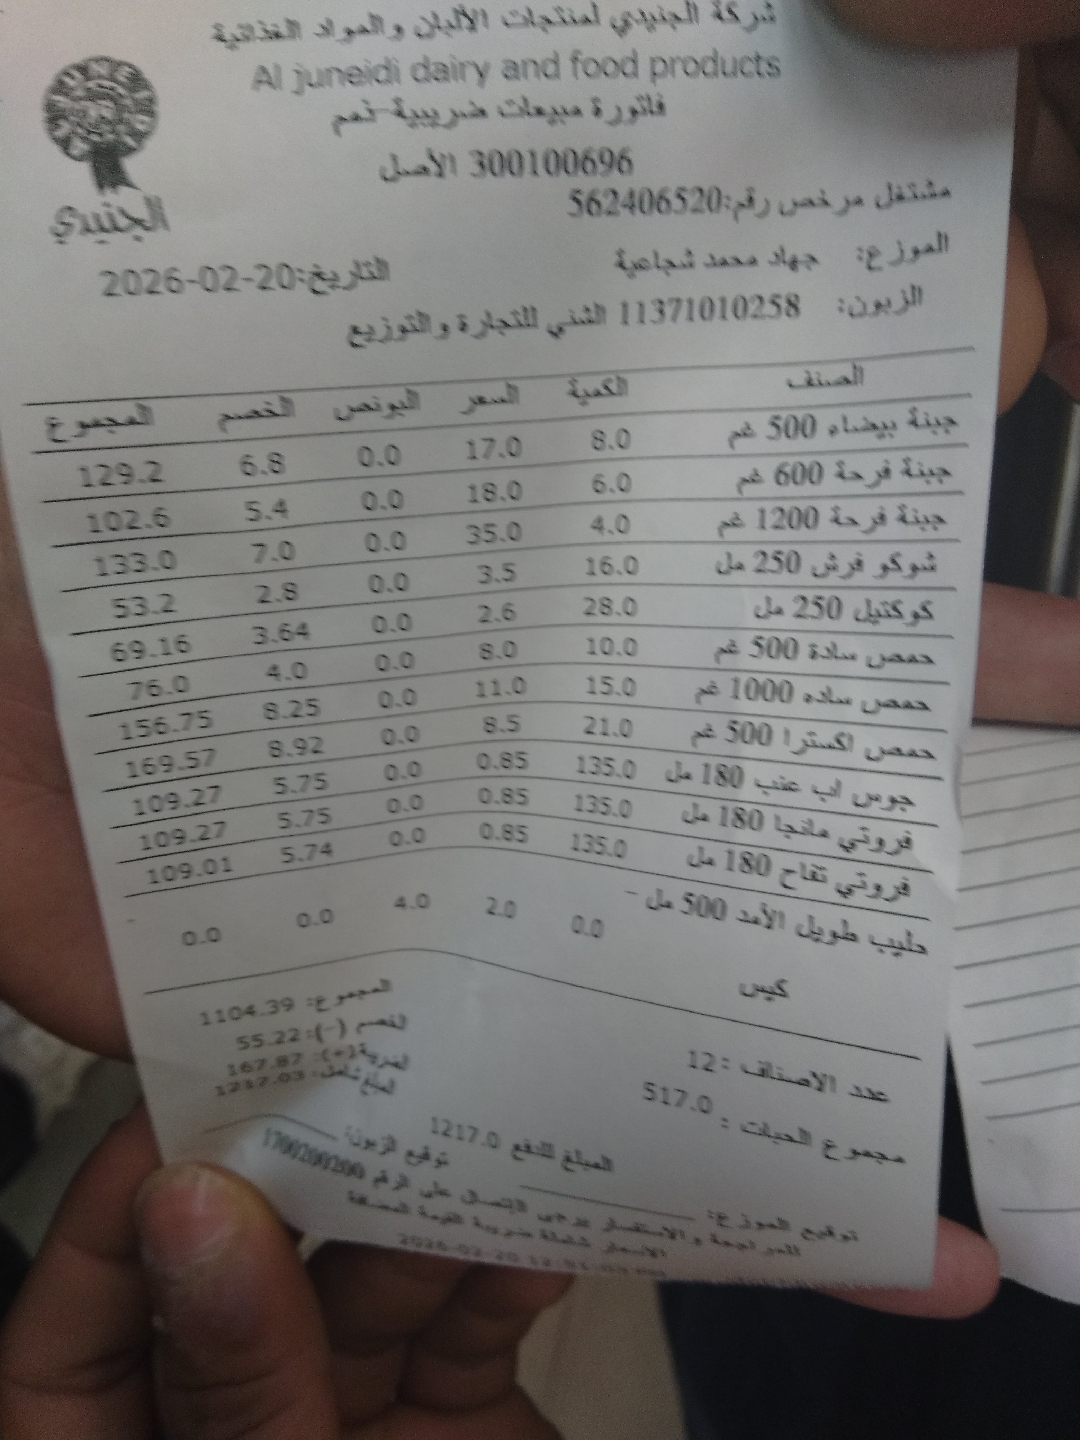 شركة الجنيدي لمنتجات الألبان والمواد الغذائية
Al juneidi dairy and food products
فاتورة مبيعات ضريبية-ذمم
300100696 الأصل
الجنيدي
مشتغل مرخص رقم:562406520
الموزع: جهاد محمد شجاعية
التاريخ:2026-02-20
الزبون: 11371010258 الشني للتجارة والتوزيع
الصنف الكمية السعر البونص الخصم المجموع
جبنة بيضاء 500 غم 8.0 17.0 0.0 6.8 129.2
جبنة فرحة 600 غم 6.0 18.0 0.0 5.4 102.6
جبنة فرحة 1200 غم 4.0 35.0 0.0 7.0 133.0
شوكو فرش 250 مل 16.0 3.5 0.0 2.8 53.2
كوكتيل 250 مل 28.0 2.6 0.0 3.64 69.16
حمص سادة 500 غم 10.0 8.0 0.0 4.0 76.0
حمص ساده 1000 غم 15.0 11.0 0.0 8.25 156.75
حمص اكسترا 500 غم 21.0 8.5 0.0 8.92 169.57
جوس اب عنب 180 مل 135.0 0.85 0.0 5.75 109.27
فروتي مانجا 180 مل 135.0 0.85 0.0 5.75 109.27
فروتي تفاح 180 مل 135.0 0.85 0.0 5.74 109.01
حليب طويل الأمد 500 مل - 0.0 2.0 4.0 0.0 0.0
كيس
المجموع: 1104.39
الخصم (-): 55.22
الضريبة(+): 167.87
المبلغ شامل: 1217.03
عدد الاصناف :12
مجموع الحبات : 517.0
المبلغ للدفع 1217.0
توقيع الزبون:
توقيع الموزع:
للمراجعة والاستفسار يرجى الإتصال على الرقم 1700200200
الاسعار شاملة ضريبة القيمة المضافة
2026-02-20